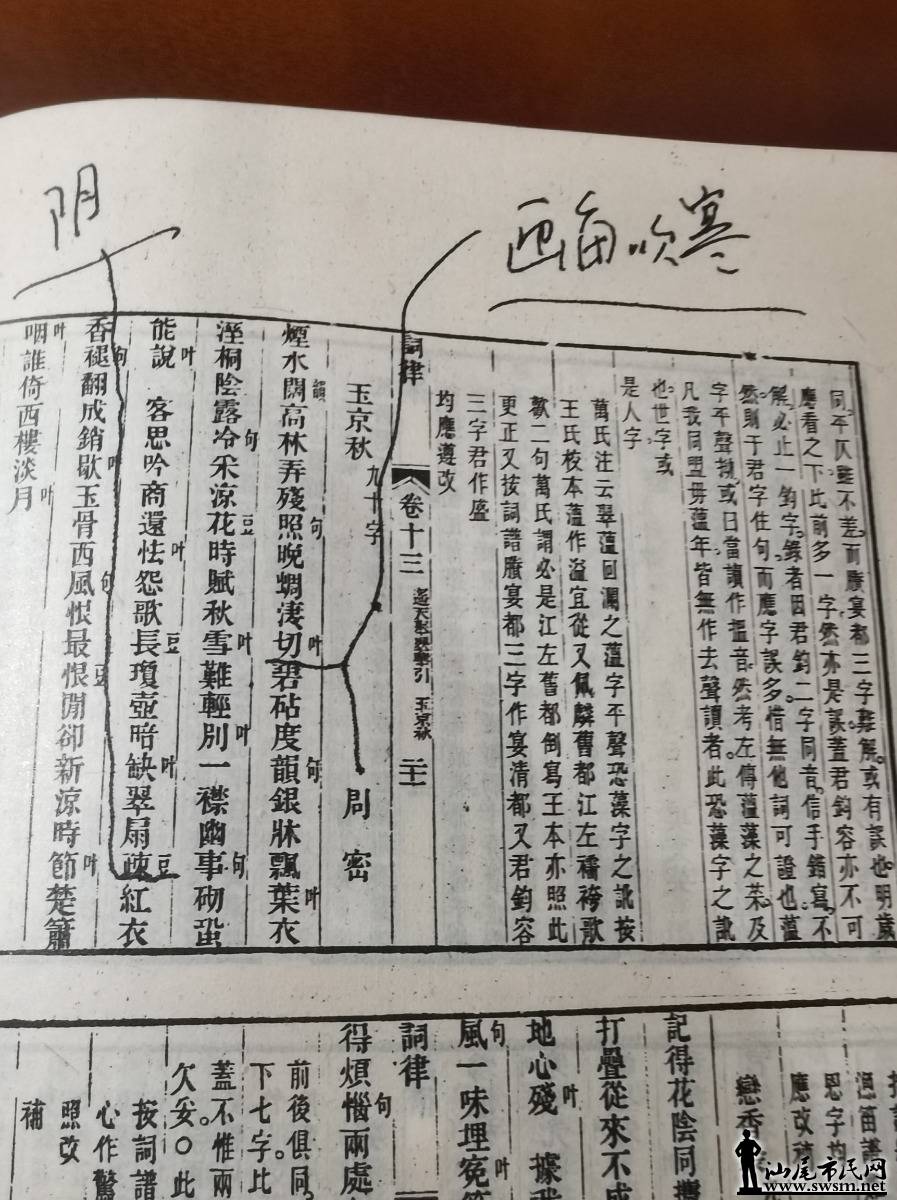 阴
画角吹寒
同平仄雖不差而賡宴都三字難解或有誤也明歲
應看之下比前多一字然亦是誤蓋君鈞容亦不可
解必止一鈞字錄者因君鈞二字同音信手錯寫不
然則于君字住句而應字誤多惜無他詞可證也薀
字平聲拗或曰當讀作搵音然考左傳薀藻之菜及
凡我同盟毋薀年皆無作去聲讀者此恐藻字之訛
也世字或
是人字
萬氏注云翠薀回瀾之薀字平聲恐藻字之訛按
王氏校本薀作溢宜從又佩麟舊都江左襦袴歌
歡二句萬氏謂必是江左舊都倒寫王本亦照此
更正又按詞譜賡宴都三字作宴清都又君鈞容
三字君作盛
均應遵改
詞律
卷十三
玉京秋
二十
玉京秋 九十字
周密
煙水闊韻高林弄殘照句晚蜩淒切叶碧砧度韻句銀牀飄葉叶衣
溼桐陰露冷句采涼花豆時賦秋雪叶難輕別叶一襟幽事句砌蛩
能說叶 客思吟商還怯叶怨歌長豆瓊壺暗缺叶翠扇疎豆紅衣
香褪句翻成銷歇叶玉骨西風句恨最恨豆閒卻新涼時節叶楚簫
咽叶誰倚西樓淡月叶
記得花陰同攜
打疊從來不成
地心殘叶 據我
風句一味埋冤叶
詞律
得煩惱句兩處
前後俱同
下七字比
蓋不惟兩
欠妥〇此
按詞譜
心作驚
照改
補
戀香
汕尾市民网
www.swsm.net